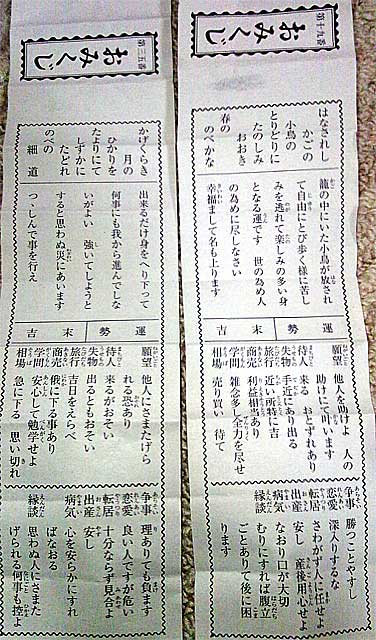 第十九番
おみくじ
はなされし
かごの
小鳥の
とりどりに
たのしみ
おおき
春の
のべかな
籠の中にいた小鳥が放され
て自由にとび歩く様に苦し
みを逃れて楽しみの多い身
となる運です 世の為め人
の為めに尽しなさい
幸福まして名も上ります
運勢 吉
願望 他人を助けよ 人の
助けにて叶います
待人 来る おとずれあり
失物 手近にあり出る
旅行 近い所特に吉
商売 利益相当あり
学問 雑念多し全力を尽せ
相場 売り買い 待て
争事 勝つことやすし
恋愛 深入りするな
転居 さわがず人に任せよ
出産 安し 産後用心せよ
病気 なおり口が大切
縁談 むりにすれば腹立
ごとありて後に困
ります
第三五番
おみくじ
かげくらき
月の
ひかりを
たよりにて
しずかに
たどれ
のべの
細道
出来るだけ身をへり下って
何事にも我から進んでしな
いがよい 強いてしようと
すると思わぬ災にあいます
つゝしんで事を行え
運勢 末吉
願望 他人にさまたげら
れる恐あり
待人 来るがおそい
失物 出るともおそい
旅行 吉日をえらべ
商売 俄に下る事あり
学問 安心して勉学せよ
相場 急に下る 思い切れ
争事 理ありても負ます
恋愛 良い人ですが危い
転居 十分ならず見合よ
出産 安し
病気 心を安らかにすれ
ばなおる
縁談 思わぬ人にさまた
げられる何事も控よ